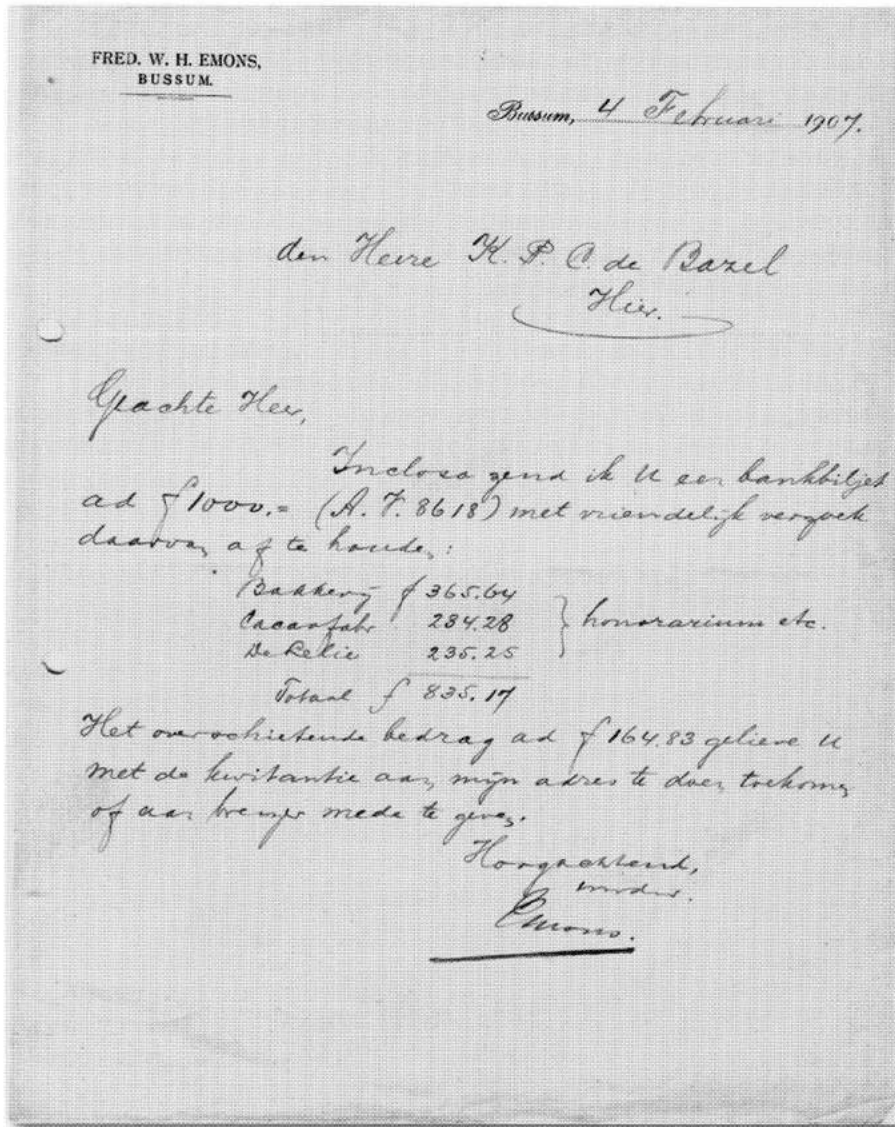 FRED. W. H. EMONS,
BUSSUM.
Bussum, 4 Februari 1907.
den Heere K. P. C. de Bazel
Hier.
Geachte Heer,
Inclosa zend ik U een bankbiljet
ad f 1000.= (A. F. 8618) met vriendelijk verzoek
daarvan af te houden:
Bakkerij f 365.64
Cacaofabr 234.28 } honorarium etc.
De Lelie 235.25
Totaal f 835.17
Het overschietende bedrag ad f 164.83 gelieve U
met de kwitantie aan mijn adres te doen toekomen
of aan brenger mede te geven.
Hoogachtend,
Emons.